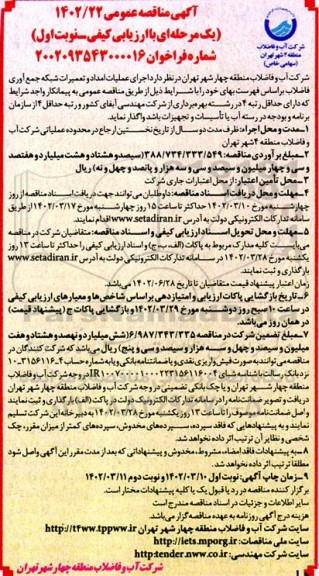 آگهی مناقصه عمومی ۱۴۰۲/۲۲
(یک مرحله‌ای با ارزیابی کیفی-نوبت اول)
شماره فراخوان ۲۰۰۲۰۹۳۵۴۳۰۰۰۰۱۶
شرکت آب و فاضلاب
منطقه ۴ شهر تهران
(سهامی خاص)
شرکت آب و فاضلاب منطقه چهار شهر تهران در نظر دارد اجرای عملیات امداد و تعمیرات شبکه جمع آوری
فاضلاب براساس فهرست بهای خود را با شرایط ذیل از طریق مناقصه عمومی به پیمانکار واجد شرایط
که دارای حداقل رتبه ۴ در رشته بهره‌برداری از شرکت مهندسی آبفای کشور و رتبه حداقل ۴ از سازمان
برنامه و بودجه در رسته آب یا تأسیسات و تجهیزات باشد واگذار نماید.
۱-مدت و محل اجراء: ظرف مدت دو سال از تاریخ نخستین ارجاع در محدوده عملیاتی شرکت آب
و فاضلاب منطقه ۴ شهر تهران
۲-مبلغ برآوردی مناقصه: ۳۸۸/۷۳۴/۳۳۳/۵۴۹ (سیصد و هشتاد و هشت میلیارد و هفتصد
و سی و چهار میلیون و سیصد و سی و سه هزار و پانصد و چهل و نه) ریال
۳-محل تأمین اعتبار: از محل اعتبارات جاری شرکت
۴-مهلت و محل دریافت اسناد مناقصه: داوطلبان می‌توانند جهت دریافت اسناد مناقصه از روز
چهارشنبه مورخ ۱۴۰۲/۰۳/۱۰ حداکثر تا ساعت ۱۵ روز چهارشنبه مورخ ۱۴۰۲/۰۳/۱۷ از طریق
سامانه تدارکات الکترونیکی دولت به آدرس www.setadiran.ir اقدام نمایند.
۵-مهلت و محل تحویل اسناد ارزیابی کیفی و اسناد مناقصه: متقاضیان شرکت در مناقصه
می‌بایست کلیه مدارک مربوط به پاکات (الف، ب، ج) و اسناد ارزیابی کیفی را حداکثر تا ساعت ۱۳ روز
یکشنبه مورخ ۱۴۰۲/۰۳/۲۸ در سامانه تدارکات الکترونیکی دولت به آدرس www.setadiran.ir
بارگذاری و ثبت نمایند.
زمان اعتبار پیشنهاد قیمت متقاضیان تا تاریخ ۱۴۰۲/۰۶/۲۸ می‌باشد.
۶-تاریخ بازگشایی پاکات ارزیابی و امتیازدهی براساس شاخص‌ها و معیارهای ارزیابی کیفی
در ساعت ۹ صبح روز دوشنبه مورخ ۱۴۰۲/۰۳/۲۹ و بازگشایی پاکات ج (پیشنهاد قیمت)
در همان روز می‌باشد.
۷-مبلغ تضمین شرکت در مناقصه ۶/۹۸۷/۳۴۳/۳۳۵ (شش میلیارد و نهصد و هشتاد و هفت
میلیون و سیصد و چهل و سه هزار و سیصد و سی و پنج) ریال می‌باشد که شرکت کنندگان در
مناقصه می‌توانند به صورت فیش واریزی نقدی و یا ضمانتنامه بانکی و یا به شماره حساب ۴-۳۱۵۶۱۱۶-۱۰
نزد بانک رسالت با شناسه شبای IR در وجه شرکت آب و فاضلاب
منطقه چهار شهر تهران و یا چک بانکی تضمینی در وجه شرکت آب و فاضلاب منطقه چهار شهر تهران
دریافت و تصویر ضمانتنامه را در سامانه تدارکات الکترونیک دولت در پاکت (الف) بارگذاری و ثبت نمایند
و اصل ضمانتنامه موصوف را تا ساعت ۱۳ روز یکشنبه مورخ ۱۴۰۲/۰۳/۲۸ به دبیرخانه این شرکت تسلیم
نمایند و به پیشنهادهایی که فاقد سپرده، سپرده‌های مخدوش، سپرده‌های کمتر از میزان مقرر، چک
شخصی و نظایر آن ترتیب اثر داده نخواهد شد.
۸-به پیشنهادات فاقد امضاء، مشروط، مخدوش و پیشنهاداتی که بعد از مدت مقرر این آگهی واصل شود
مطلقا ترتیب اثر داده نخواهد شد.
۹-زمان چاپ آگهی: نوبت اول ۱۴۰۲/۰۳/۱۰ و نوبت دوم ۱۴۰۲/۰۳/۱۱
برگزار کننده مناقصه در رد یا قبول یک یا کلیه پیشنهادات مختار است.
سایر اطلاعات و جزئیات در اسناد مناقصه مندرج است
هزینه درج آگهی روزنامه به عهده مناقصه گزار می‌باشد.
سایت شرکت آب و فاضلاب منطقه چهار شهر تهران http://t4ww.tpww.ir
سایت ملی مناقصات: http://iets.mporg.ir
سایت شرکت مهندسی: http:tender.nww.co.ir
شرکت آب و فاضلاب منطقه چهار شهر تهران